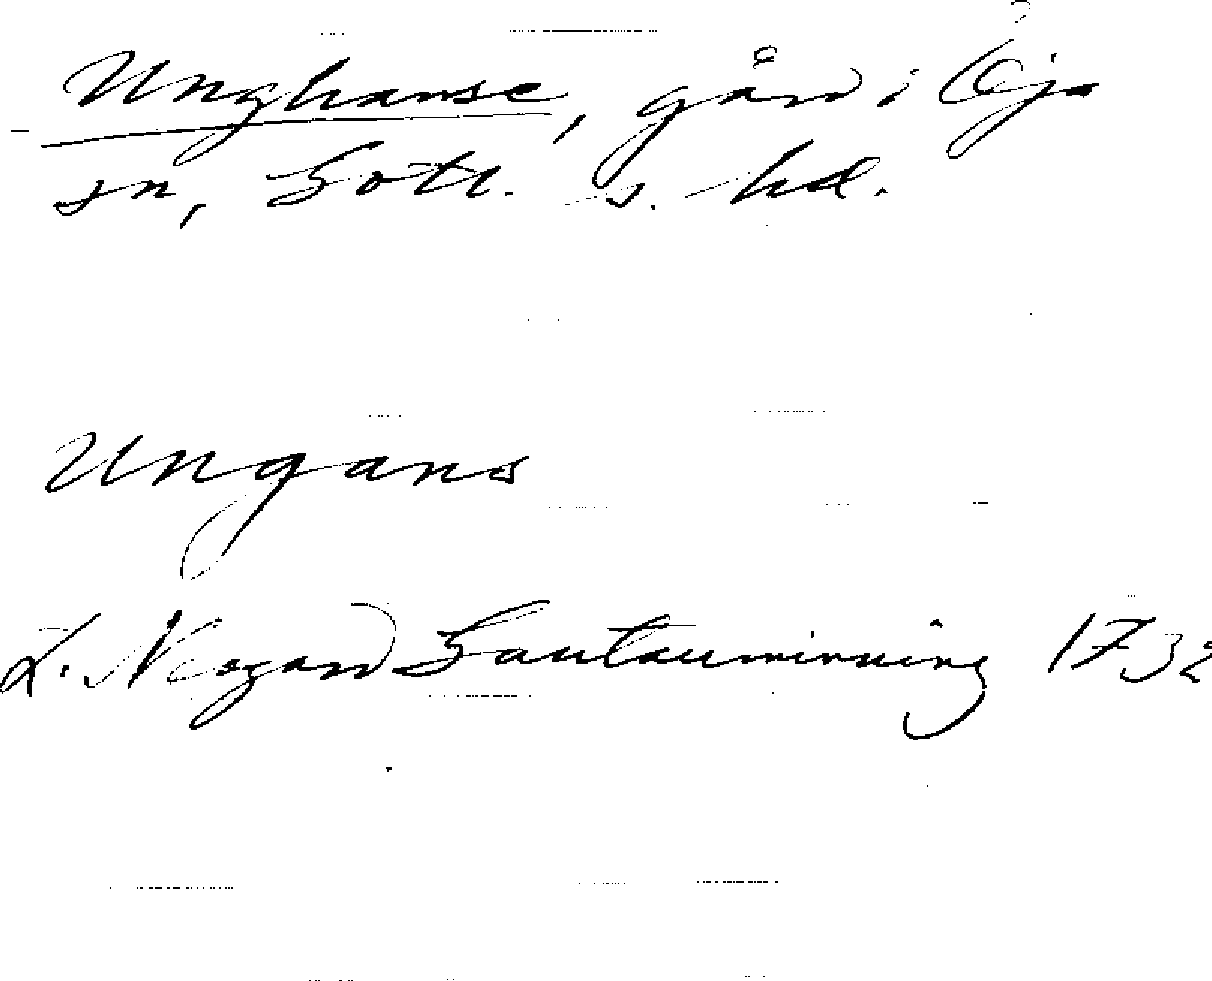 Unghanse, gård i Öja
sn, Gotl. s. hd.
Ungans
L. Neogard Gautauminning 1732